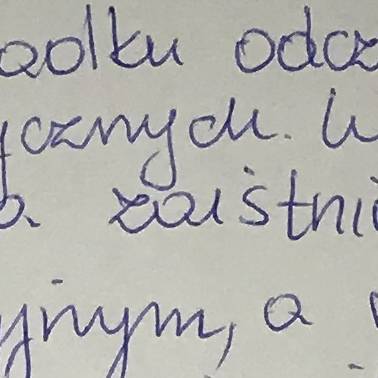 adku odcz
ycznych. W
a zaistni
yjnym, a